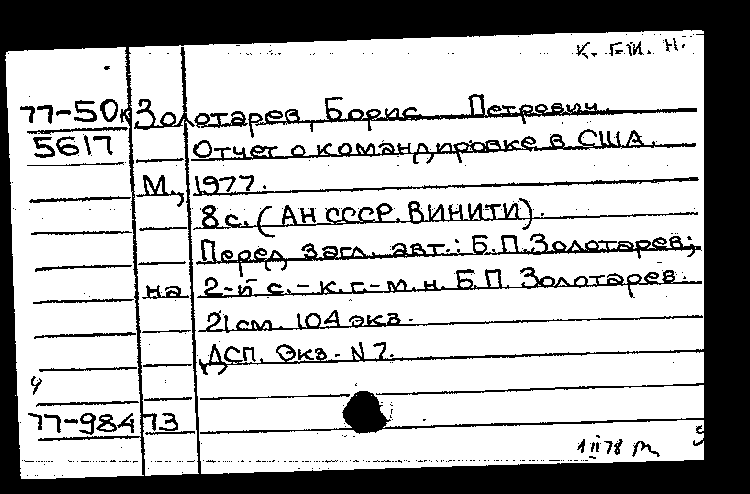 К. Г-М. Н.
77-50к Золотарев, Борис Петрович.
5617 Отчет о командировке в США.
М., 1977.
8с. (АН СССР. ВИНИТИ).
Перед загл. авт.: Б.П.Золотарев;
на 2-й с.- к.г.-м.н. Б.П. Золотарев.
21см. 104 экз.
ДСП. Экз. N 7.
ч
77-98473
1 II 78